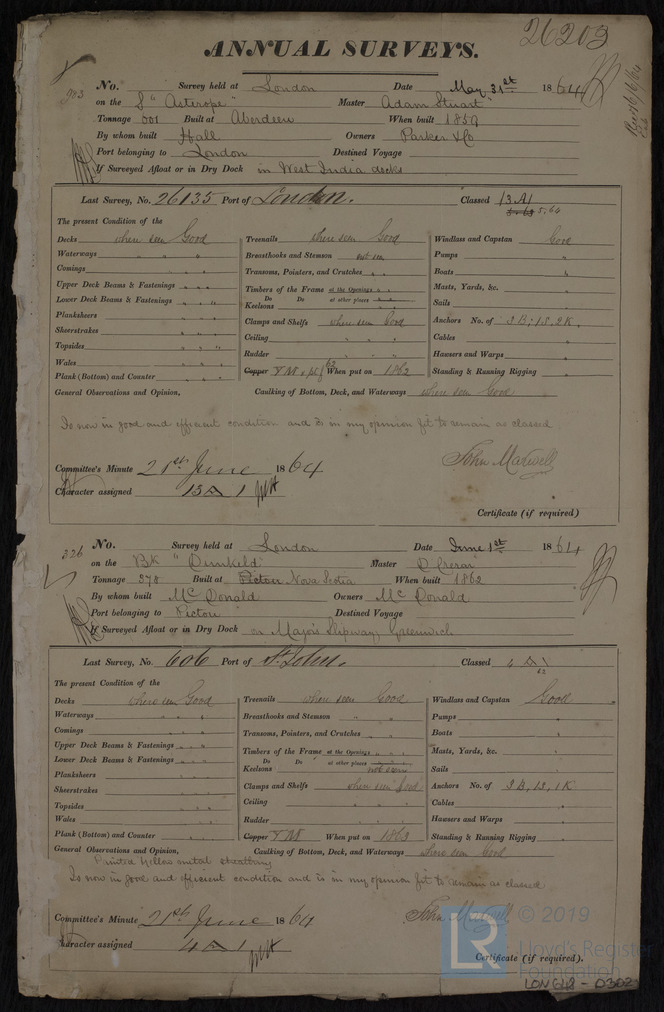 26203
ANNUAL SURVEYS.
No. Survey held at London Date May 31st 1864
on the S "Asterope" Master Adam Stuart
Tonnage 601 Built at Aberdeen When built 1859
By whom built Hall Owners Parker & Co
Port belonging to London Destined Voyage
If Surveyed Afloat or in Dry Dock in West India docks
Last Survey, No. 26135 Port of London. Classed 13 A 1
5.64
The present Condition of the
Decks where seen Good
Waterways " " "
Comings " "
Upper Deck Beams & Fastenings " " "
Lower Deck Beams & Fastenings " " "
Planksheers " " "
Sheerstrakes " " "
Topsides " " "
Wales " " "
Plank (Bottom) and Counter " " "
Treenails where seen Good
Breasthooks and Stemson not seen
Transoms, Pointers, and Crutches " "
Timbers of the Frame at the Openings " "
Do Do at other places
Keelsons " "
Clamps and Shelfs where seen Good
Ceiling " " "
Rudder " " "
Copper YM & pt f 62 When put on 1862
Windlass and Capstan Good
Pumps "
Boats "
Masts, Yards, &c. "
Sails "
Anchors No. of 3B, 1S, 2K.
Cables "
Hawsers and Warps "
Standing & Running Rigging "
General Observations and Opinion, Caulking of Bottom, Deck, and Waterways where seen Good
Is now in good and efficient condition and is in my opinion fit to remain as classed
John Maxwell
Committee's Minute 21st June 1864
Character assigned 13 A 1
Certificate (if required)
326 No. Survey held at London Date June 1st 1864
on the Bk "Dunkeld" Master D Crerar
Tonnage 378 Built at Pictou Nova Scotia When built 1862
By whom built McDonald Owners McDonald
Port belonging to Pictou Destined Voyage
If Surveyed Afloat or in Dry Dock on Major's Slipway, Greenwich
Last Survey, No. 606 Port of St. John. Classed 4 A 1
62
The present Condition of the
Decks where seen Good
Waterways " " "
Comings " " "
Upper Deck Beams & Fastenings " " "
Lower Deck Beams & Fastenings " " "
Planksheers " " "
Sheerstrakes " " "
Topsides " " "
Wales " " "
Plank (Bottom) and Counter " " "
Treenails where seen Good
Breasthooks and Stemson " "
Transoms, Pointers, and Crutches " "
Timbers of the Frame at the Openings " "
Do Do at other places
Keelsons not seen
Clamps and Shelfs where seen Good
Ceiling " "
Rudder " "
Copper YM When put on 1863
Windlass and Capstan Good
Pumps "
Boats "
Masts, Yards, &c. "
Sails "
Anchors No. of 3B, 1S, 1K
Cables "
Hawsers and Warps "
Standing & Running Rigging "
General Observations and Opinion, Caulking of Bottom, Deck, and Waterways where seen Good
Yellow metal sheathing
Is now in good and efficient condition and is in my opinion fit to remain as classed
John Maxwell
Committee's Minute 21st June 1864
Character assigned 4 A 1
Certificate (if required).
LR © 2019
Lloyd's Register
Foundation
LON648-0302